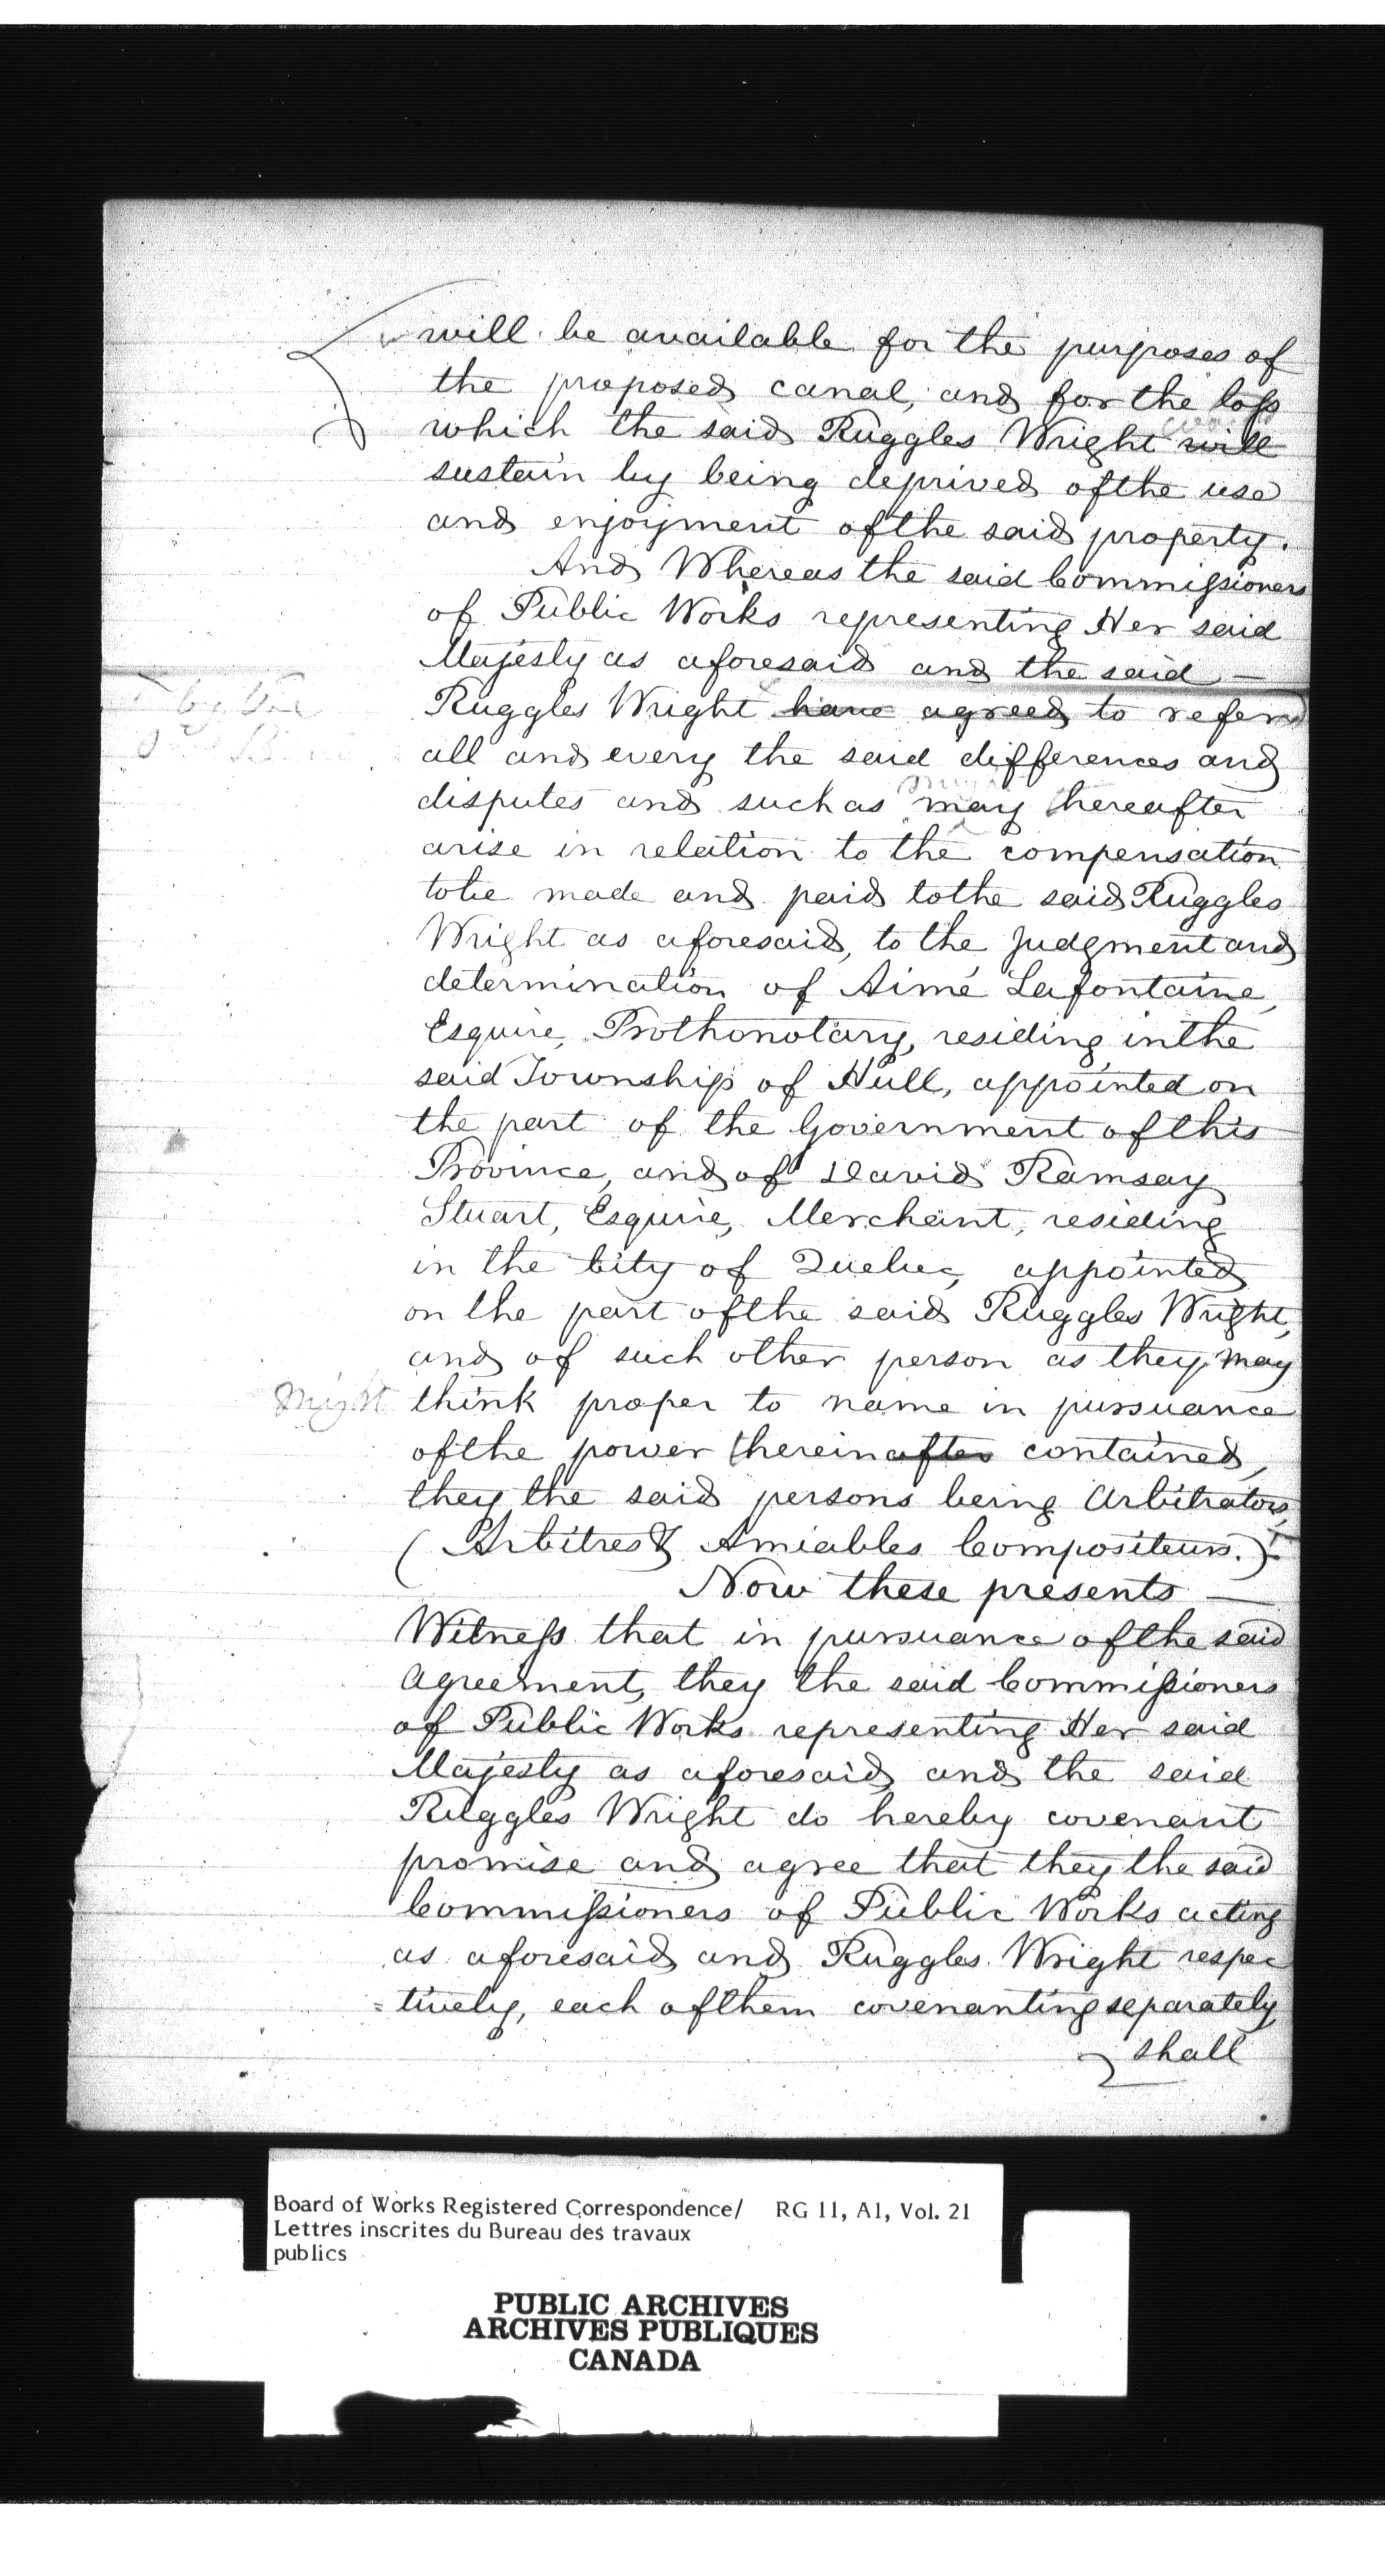 will be available for the purposes of
the proposed canal, and for the loss
which the said Ruggles Wright will
sustain by being deprived of the use
and enjoyment of the said property.
And Whereas the said Commissioners
of Public Works representing Her said
Majesty as aforesaid and the said —
Ruggles Wright have agreed to refer
all and every the said differences and
disputes and such as may hereafter
arise in relation to the compensation
to be made and paid to the said Ruggles
Wright as aforesaid, to the Judgment and
determination of Aimé Lafontaine,
Esquire, Prothonotary, residing in the
said Township of Hull, appointed on
the part of the Government of this
Province, and of David Ramsay
Stuart, Esquire, Merchant, residing
in the City of Quebec, appointed
on the part of the said Ruggles Wright,
and of such other person as they may
might think proper to name in pursuance
of the power thereinafter contained,
they the said persons being Arbitrators,
(Arbitres & Amiables Compositeurs.)
Now these presents —
Witness that in pursuance of the said
agreement, they the said Commissioners
of Public Works representing Her said
Majesty as aforesaid, and the said
Ruggles Wright do hereby covenant
promise and agree that they the said
Commissioners of Public Works acting
as aforesaid and Ruggles Wright respec
=tively, each of them covenanting separately
shall
Board of Works Registered Correspondence/ RG 11, A1, Vol. 21
Lettres inscrites du Bureau des travaux
publics
PUBLIC ARCHIVES
ARCHIVES PUBLIQUES
CANADA